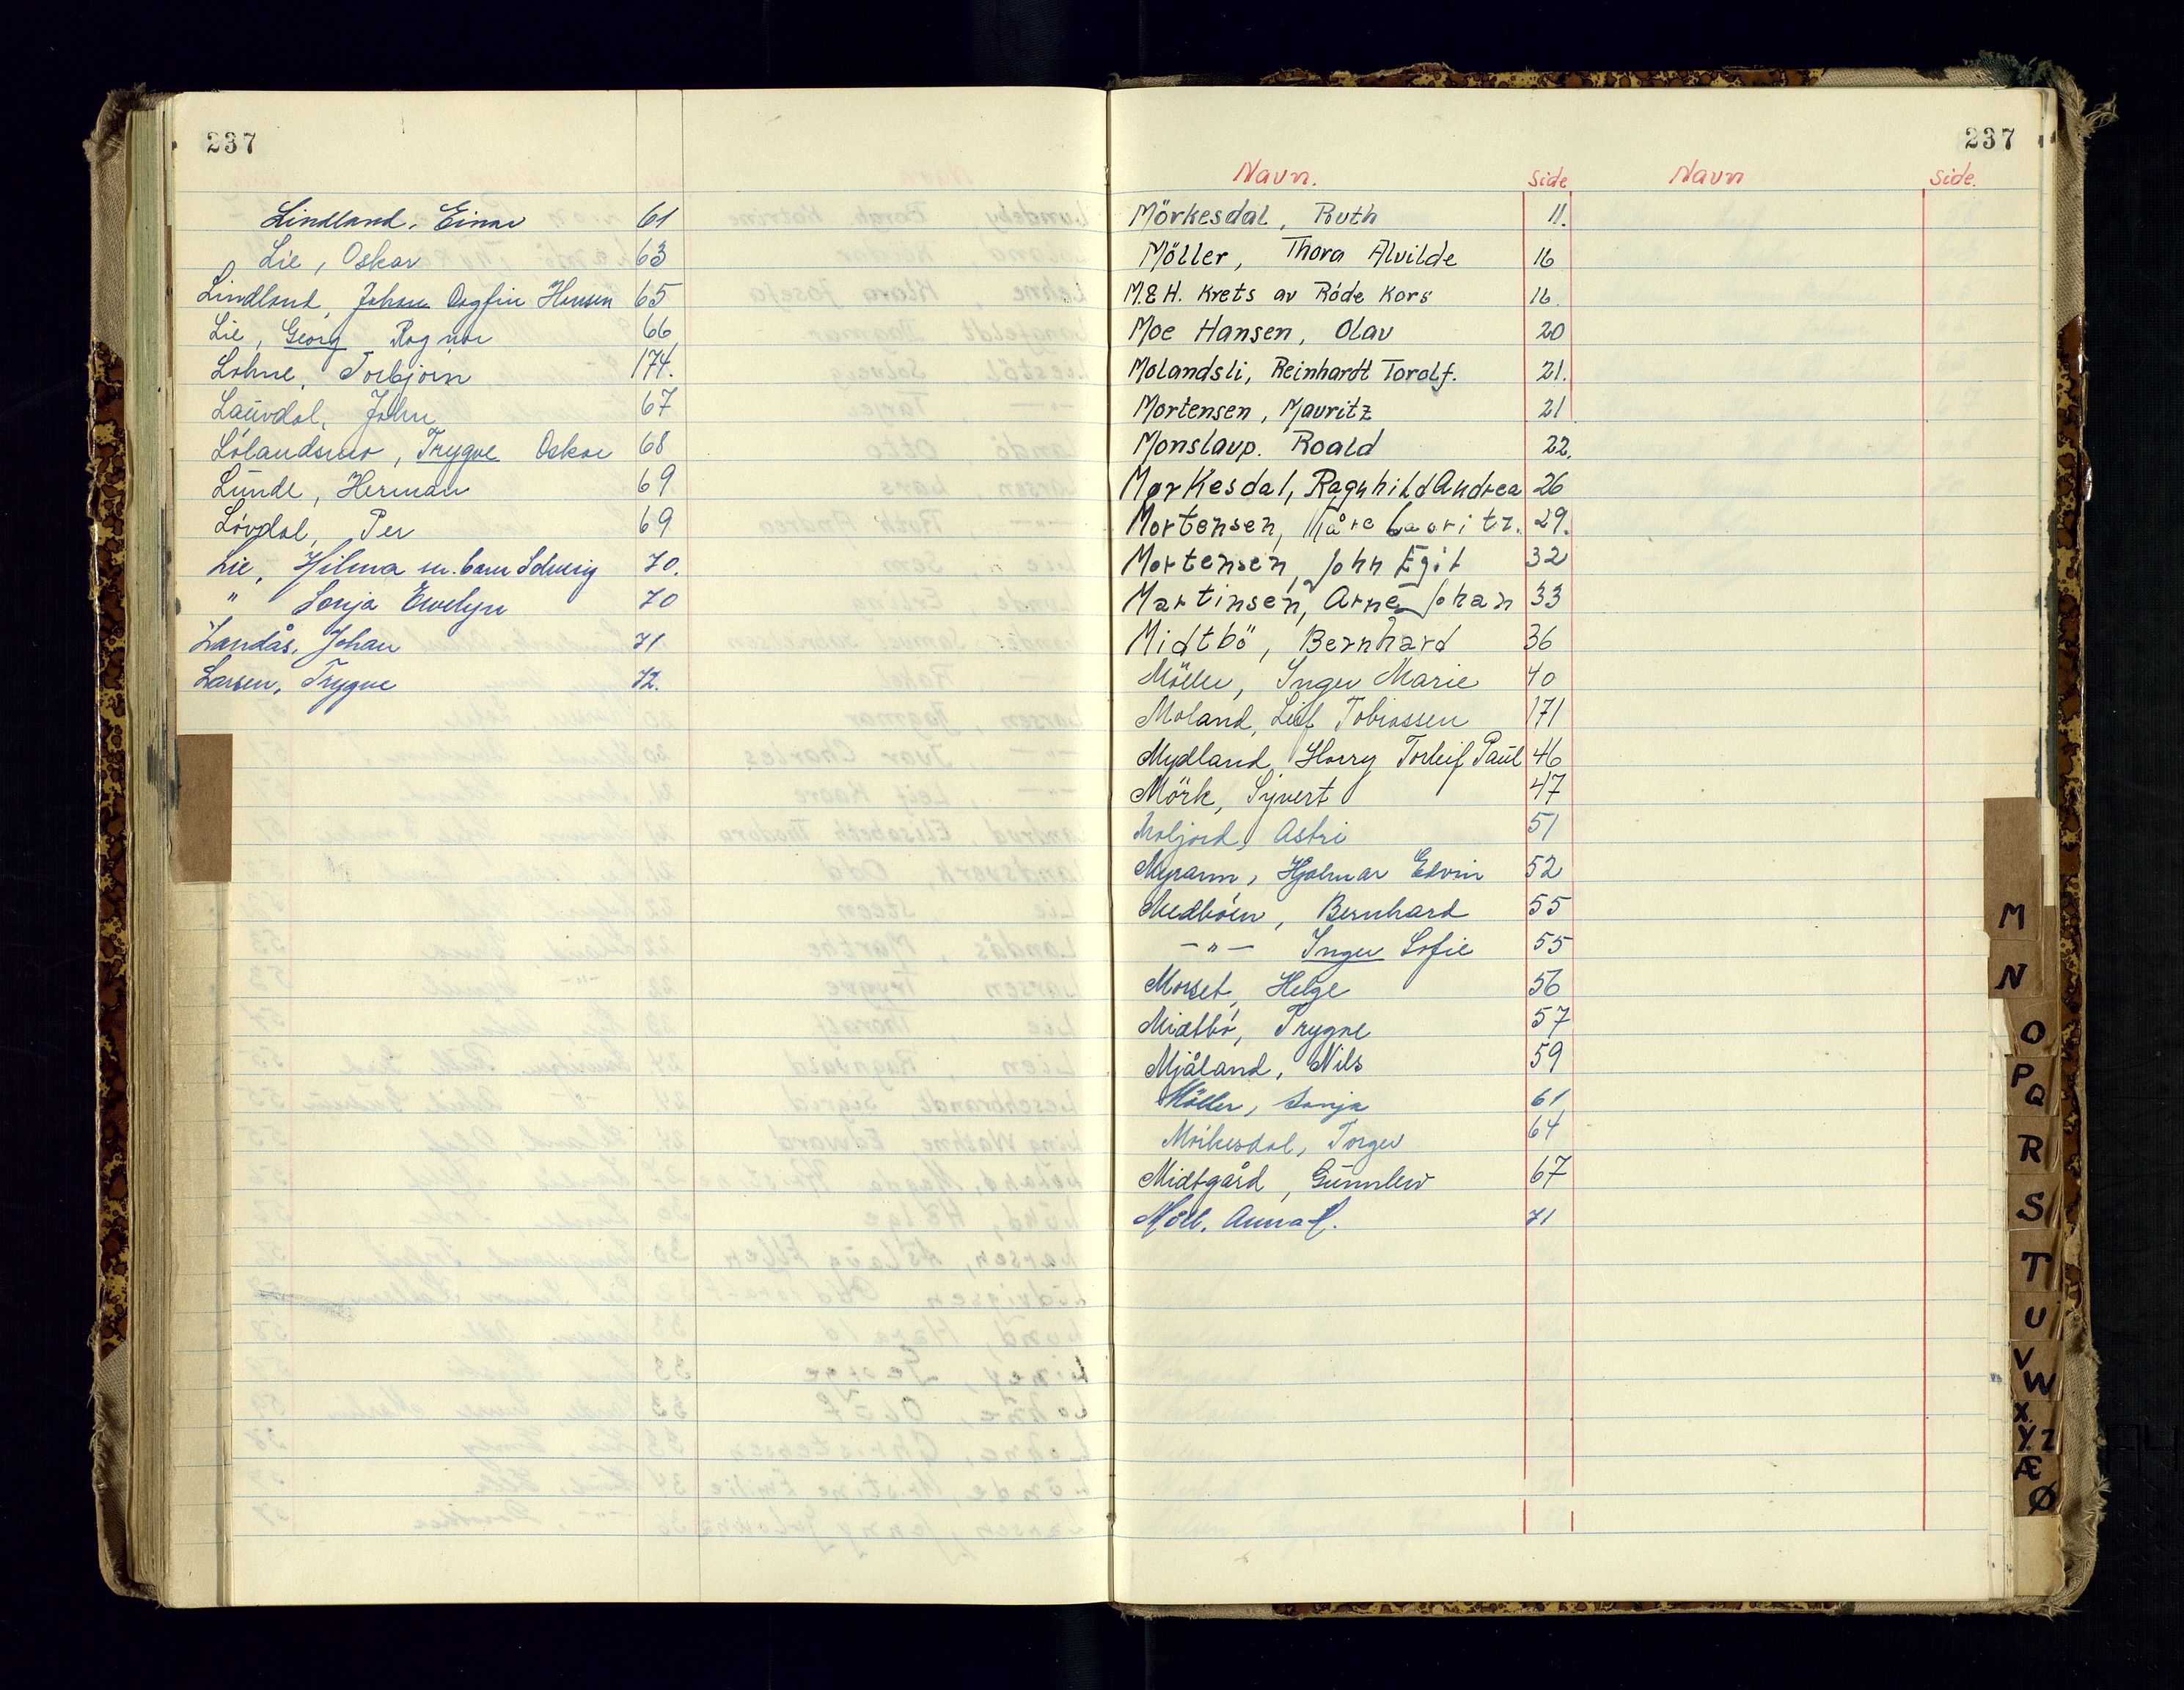 237
Lindland, Einar 61
Lie, Oskar 63
Lindland, Johan Dagfin Hansen 65
Lie, Georg Ragnar 66
Lohne, Torbjörn 174.
Lauvdal, John 67
Lölandsmo, Trygve Oskar 68
Lunde, Herman 69
Lövdal, Per 69
Lie, Hilma 70.
" Sonja Evelyn 70
Landås, Johan 71
Larsen, Trygve 72.
237
Navn. Side Navn Side.
Mörkesdal, Ruth 11.
Möller, Thora Alvilde 16
M. & H. Krets av Röde Kors 16.
Moe Hansen, Olav 20
Molandsli, Reinhardt Torolf. 21.
Mortensen, Mauritz 21
Monslaup. Roald 22.
Mørkesdal, Ragnhild Andrea 26
Mortensen, Kåre Lauritz. 29.
Mortensen, John Egil 32
Martinsen, Arne Johan 33
Midtbö, Bernhard 36
Möller, Inger Marie 40
Moland, Leif Tobiassen 171
Mydland, Harry Torleif Paul 46
Mörk, Syvert 47
Moljord, Astri 51
Myrann, Hjalmar Edvin 52
Medböen, Bernhard 55
—"— Inger Sofie 55
Morset, Helge 56
Midtbö, Trygve 57
Mjåland, Nils 59
Möller, Sonja 61
Mörkesdal, Torger 64
Midtgård, Gunnleiv 67
Möll, Anna 71
M
N
O
P
Q
R
S
T
U
V
W
X.
Y. Z
Æ
Ø